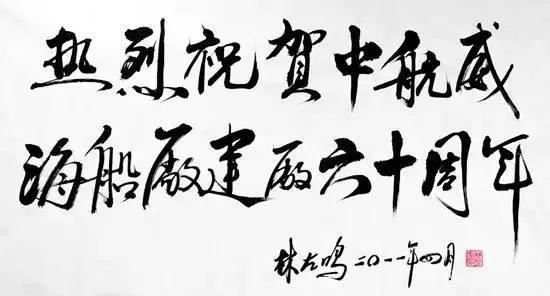 热烈祝贺中航威
海船廠建廠六十周年
林左鸣 二〇一一年四月